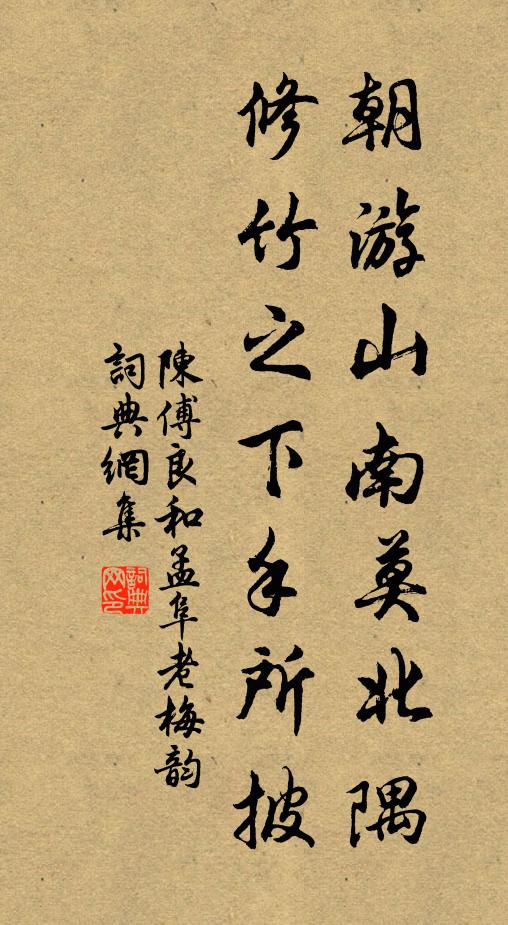 朝游山南莫北隅
修竹之下手所披
陳傅良和孟阜老梅韵
詞典網集
詞典网印